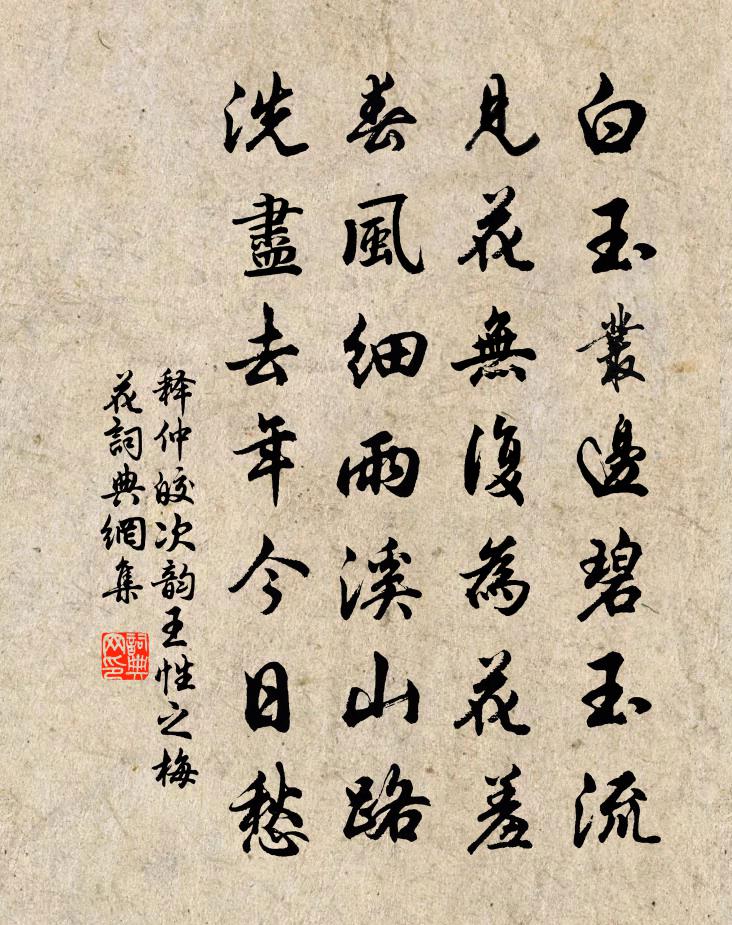 白玉叢邊碧玉流
見花無復為花羞
春風細雨溪山路
洗盡去年今日愁
释仲皎次韵王性之梅
花詞典網集
詞典
网印